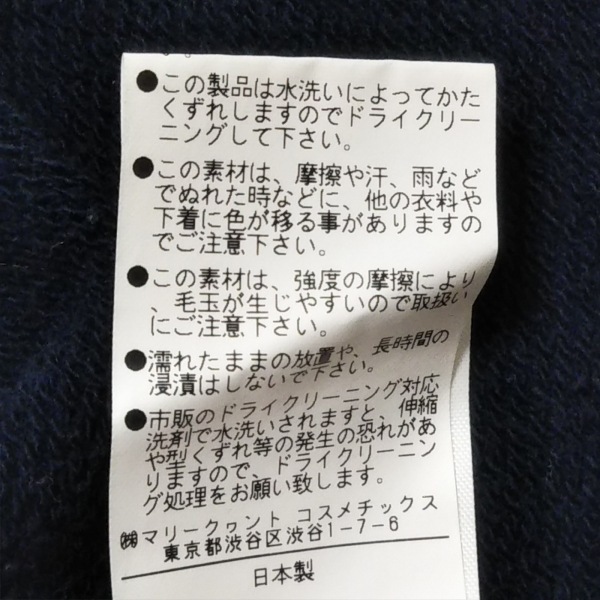 ●この製品は水洗いによってかた
くずれしますのでドライクリー
ニングして下さい。
●この素材は、摩擦や汗、雨など
でぬれた時などに、他の衣料や
下着に色が移る事がありますの
でご注意下さい。
●この素材は、強度の摩擦により
、毛玉が生じやすいので取扱い
にご注意下さい。
●濡れたままの放置や、長時間の
浸漬はしないで下さい。
●市販のドライクリーニング対応
洗剤で水洗いされますと、伸縮
や型くずれ等の発生の恐れがあ
りますので、ドライクリーニン
グ処理をお願い致します。
㈱マリークヮント コスメチックス
東京都渋谷区渋谷1-7-6
日本製